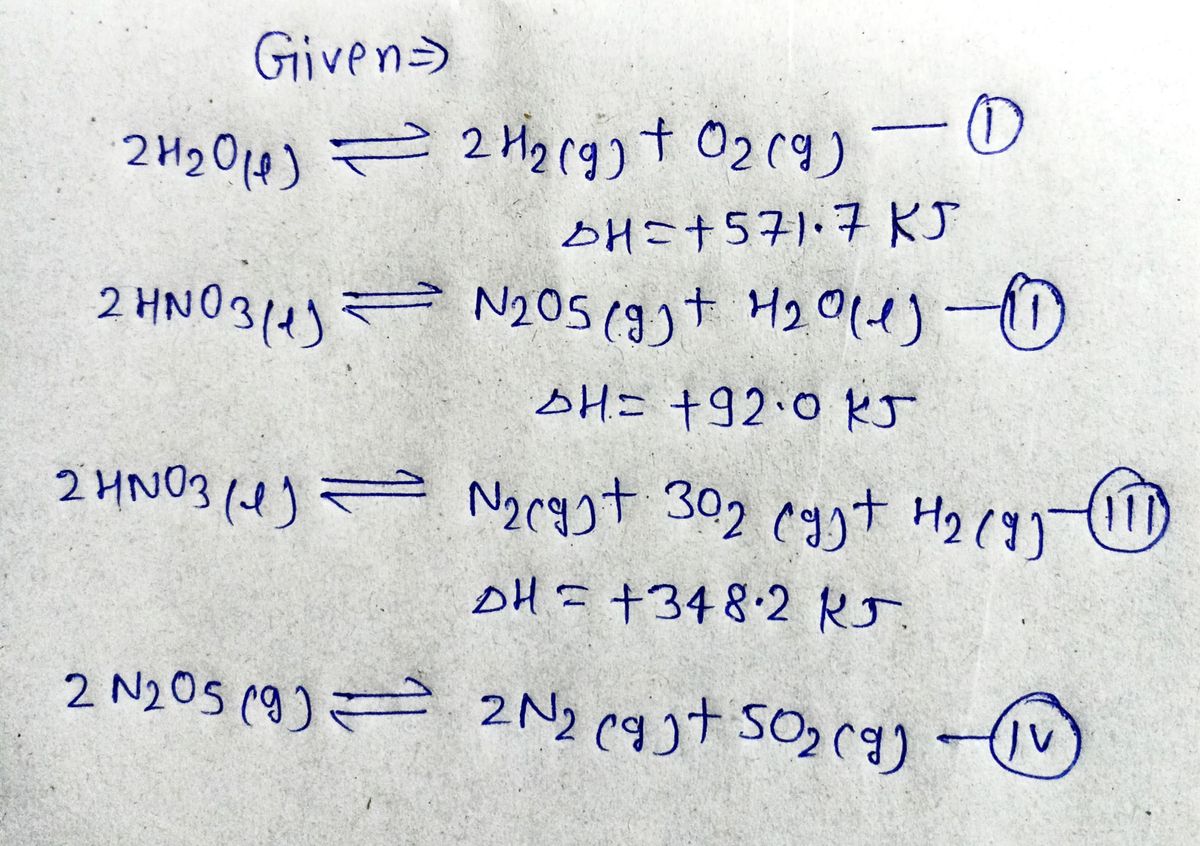 Given⇒
2H2O(l) ⇌ 2H2(g) + O2(g) — I
ΔH = +571.7 KJ
2HNO3(l) ⇌ N2O5(g) + H2O(l) — II
ΔH = +92.0 KJ
2HNO3(l) ⇌ N2(g) + 3O2(g) + H2(g) — III
ΔH = +348.2 KJ.
2N2O5(g) ⇌ 2N2(g) + 5O2(g) — IV